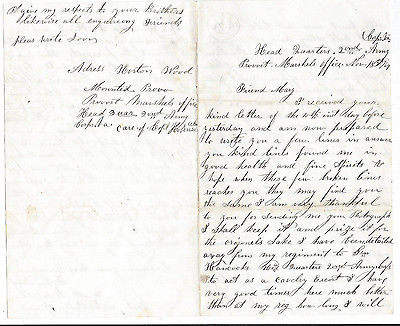 P.S give my respects to your Brothers
likewise all enquireing friends
pleas write Soon
Adress Norton Wood
Mounted Provo
Provost Marshals office
Head Quar 2nd Army
Corps care of Capt
(Copy)
Head Quarters 2nd Army
Provost Marshals office Nov
Friend Mary
I received your
kind letter of the 10th inst day before
yesterday and am now prepared
to write you a few lines in answer
you kind lines found me in
good health and fine Spirits &
hope when these few broken lines
reaches you they may find you
the same I am very thankful
to you for Sending me your Photograph
I Shall keep it and prize it for
the orajonels Sake I have been detailed
away from my regiment to
Hancocks Head Quarters 2nd Army Corps
to act as a cavelry Escort I have
very good times here much better
than at my reg how long I will